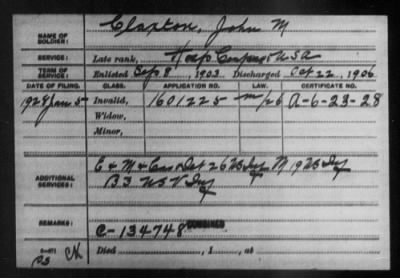 Claxton, John M
NAME OF SOLDIER:
SERVICE: Late rank, Hosp Corps USA
TERM OF SERVICE: Enlisted Sep 8, 1903. Discharged Oct 22, 1906
DATE OF FILING. CLASS. APPLICATION NO. LAW. CERTIFICATE NO.
1928 Jan 5 Invalid, 1601225 m/26 A-6-23-28
Widow,
Minor,
ADDITIONAL SERVICES: E & M & Det 26 US Inf M 19 US Inf
B 3 Inf
REMARKS: C-134748 COMBINED
Died , 1 , at